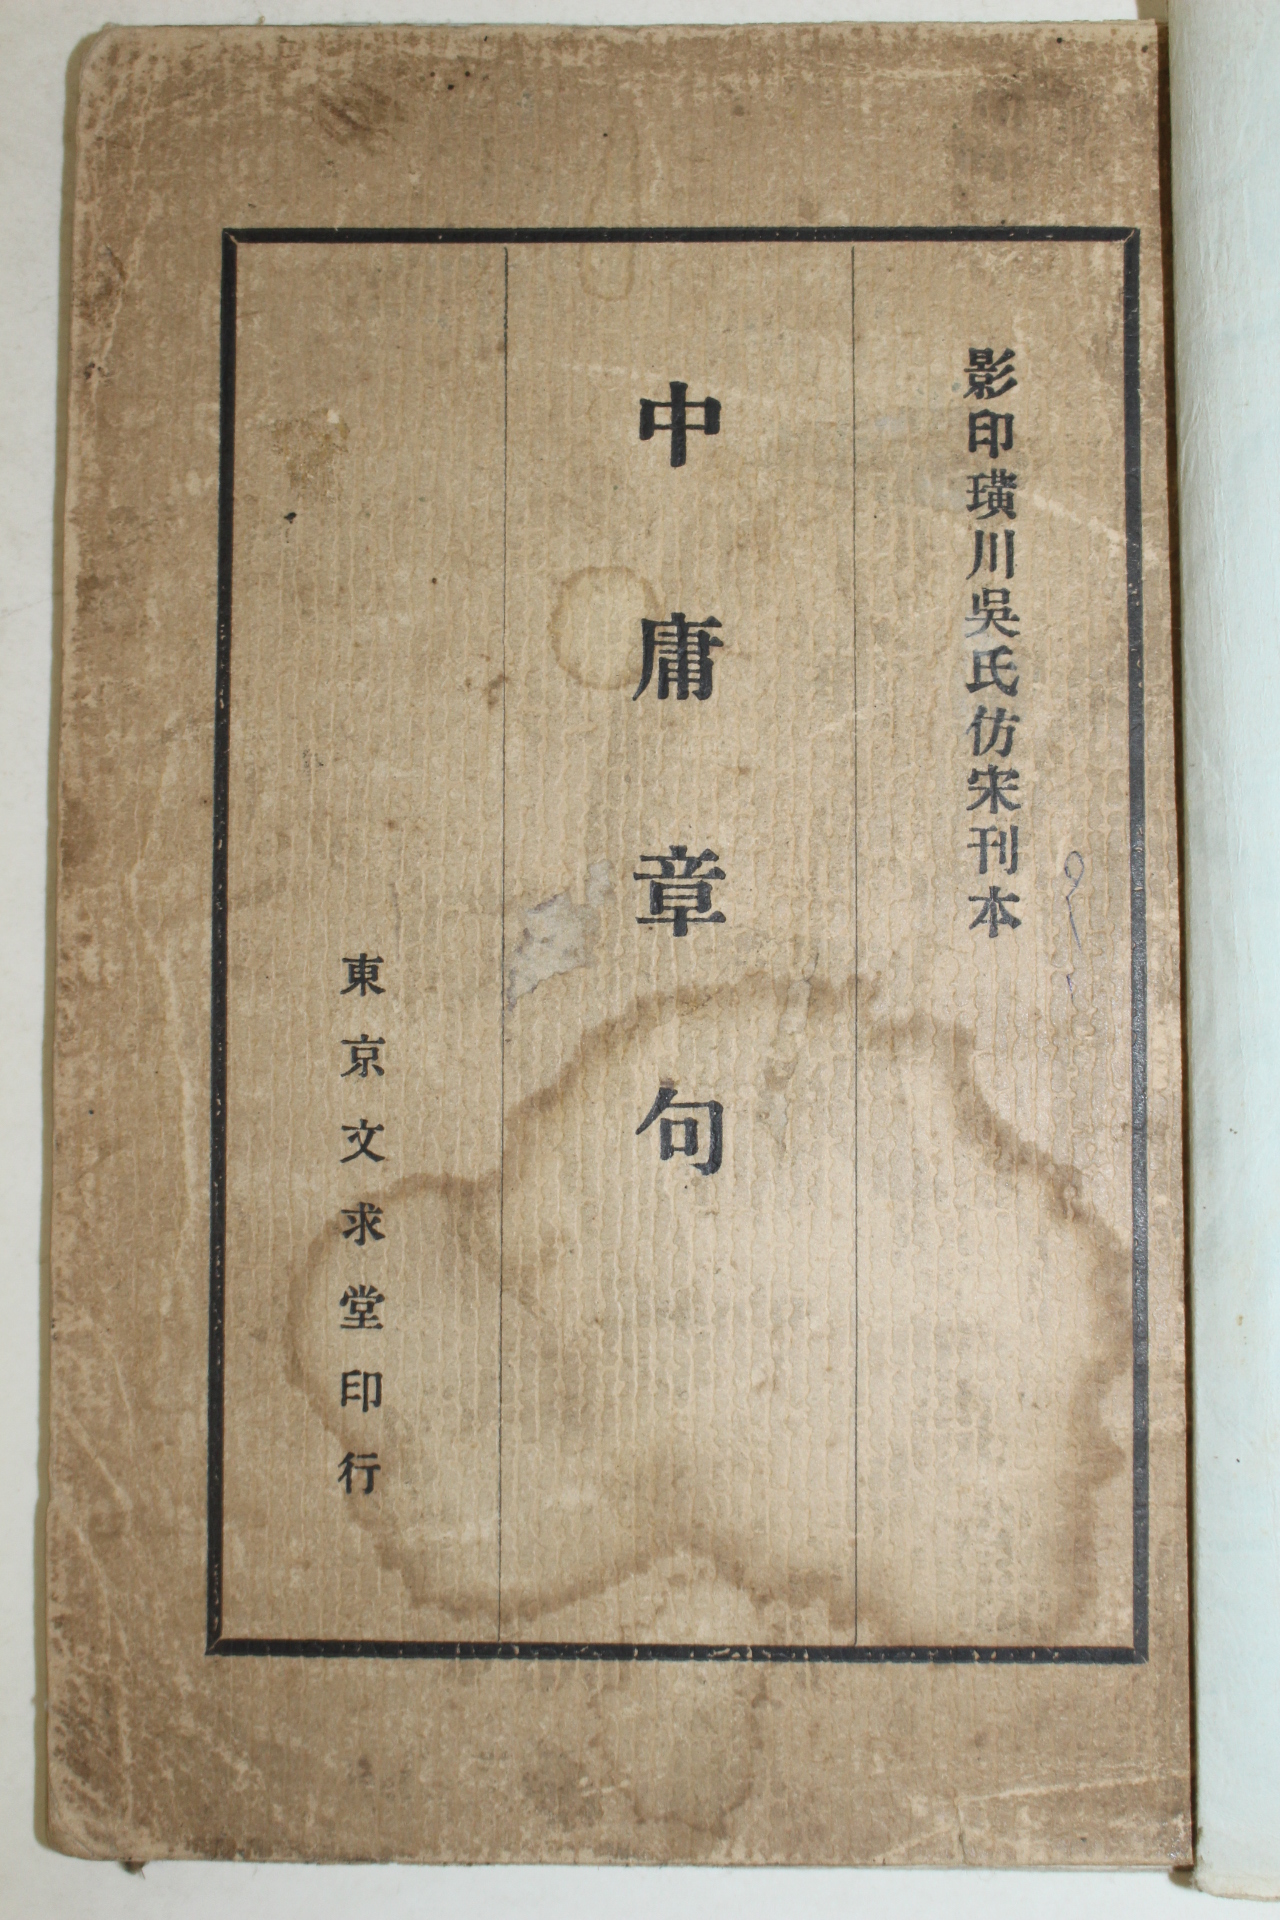 影印璜川吳氏仿宋刊本
中庸章句
東京文求堂印行